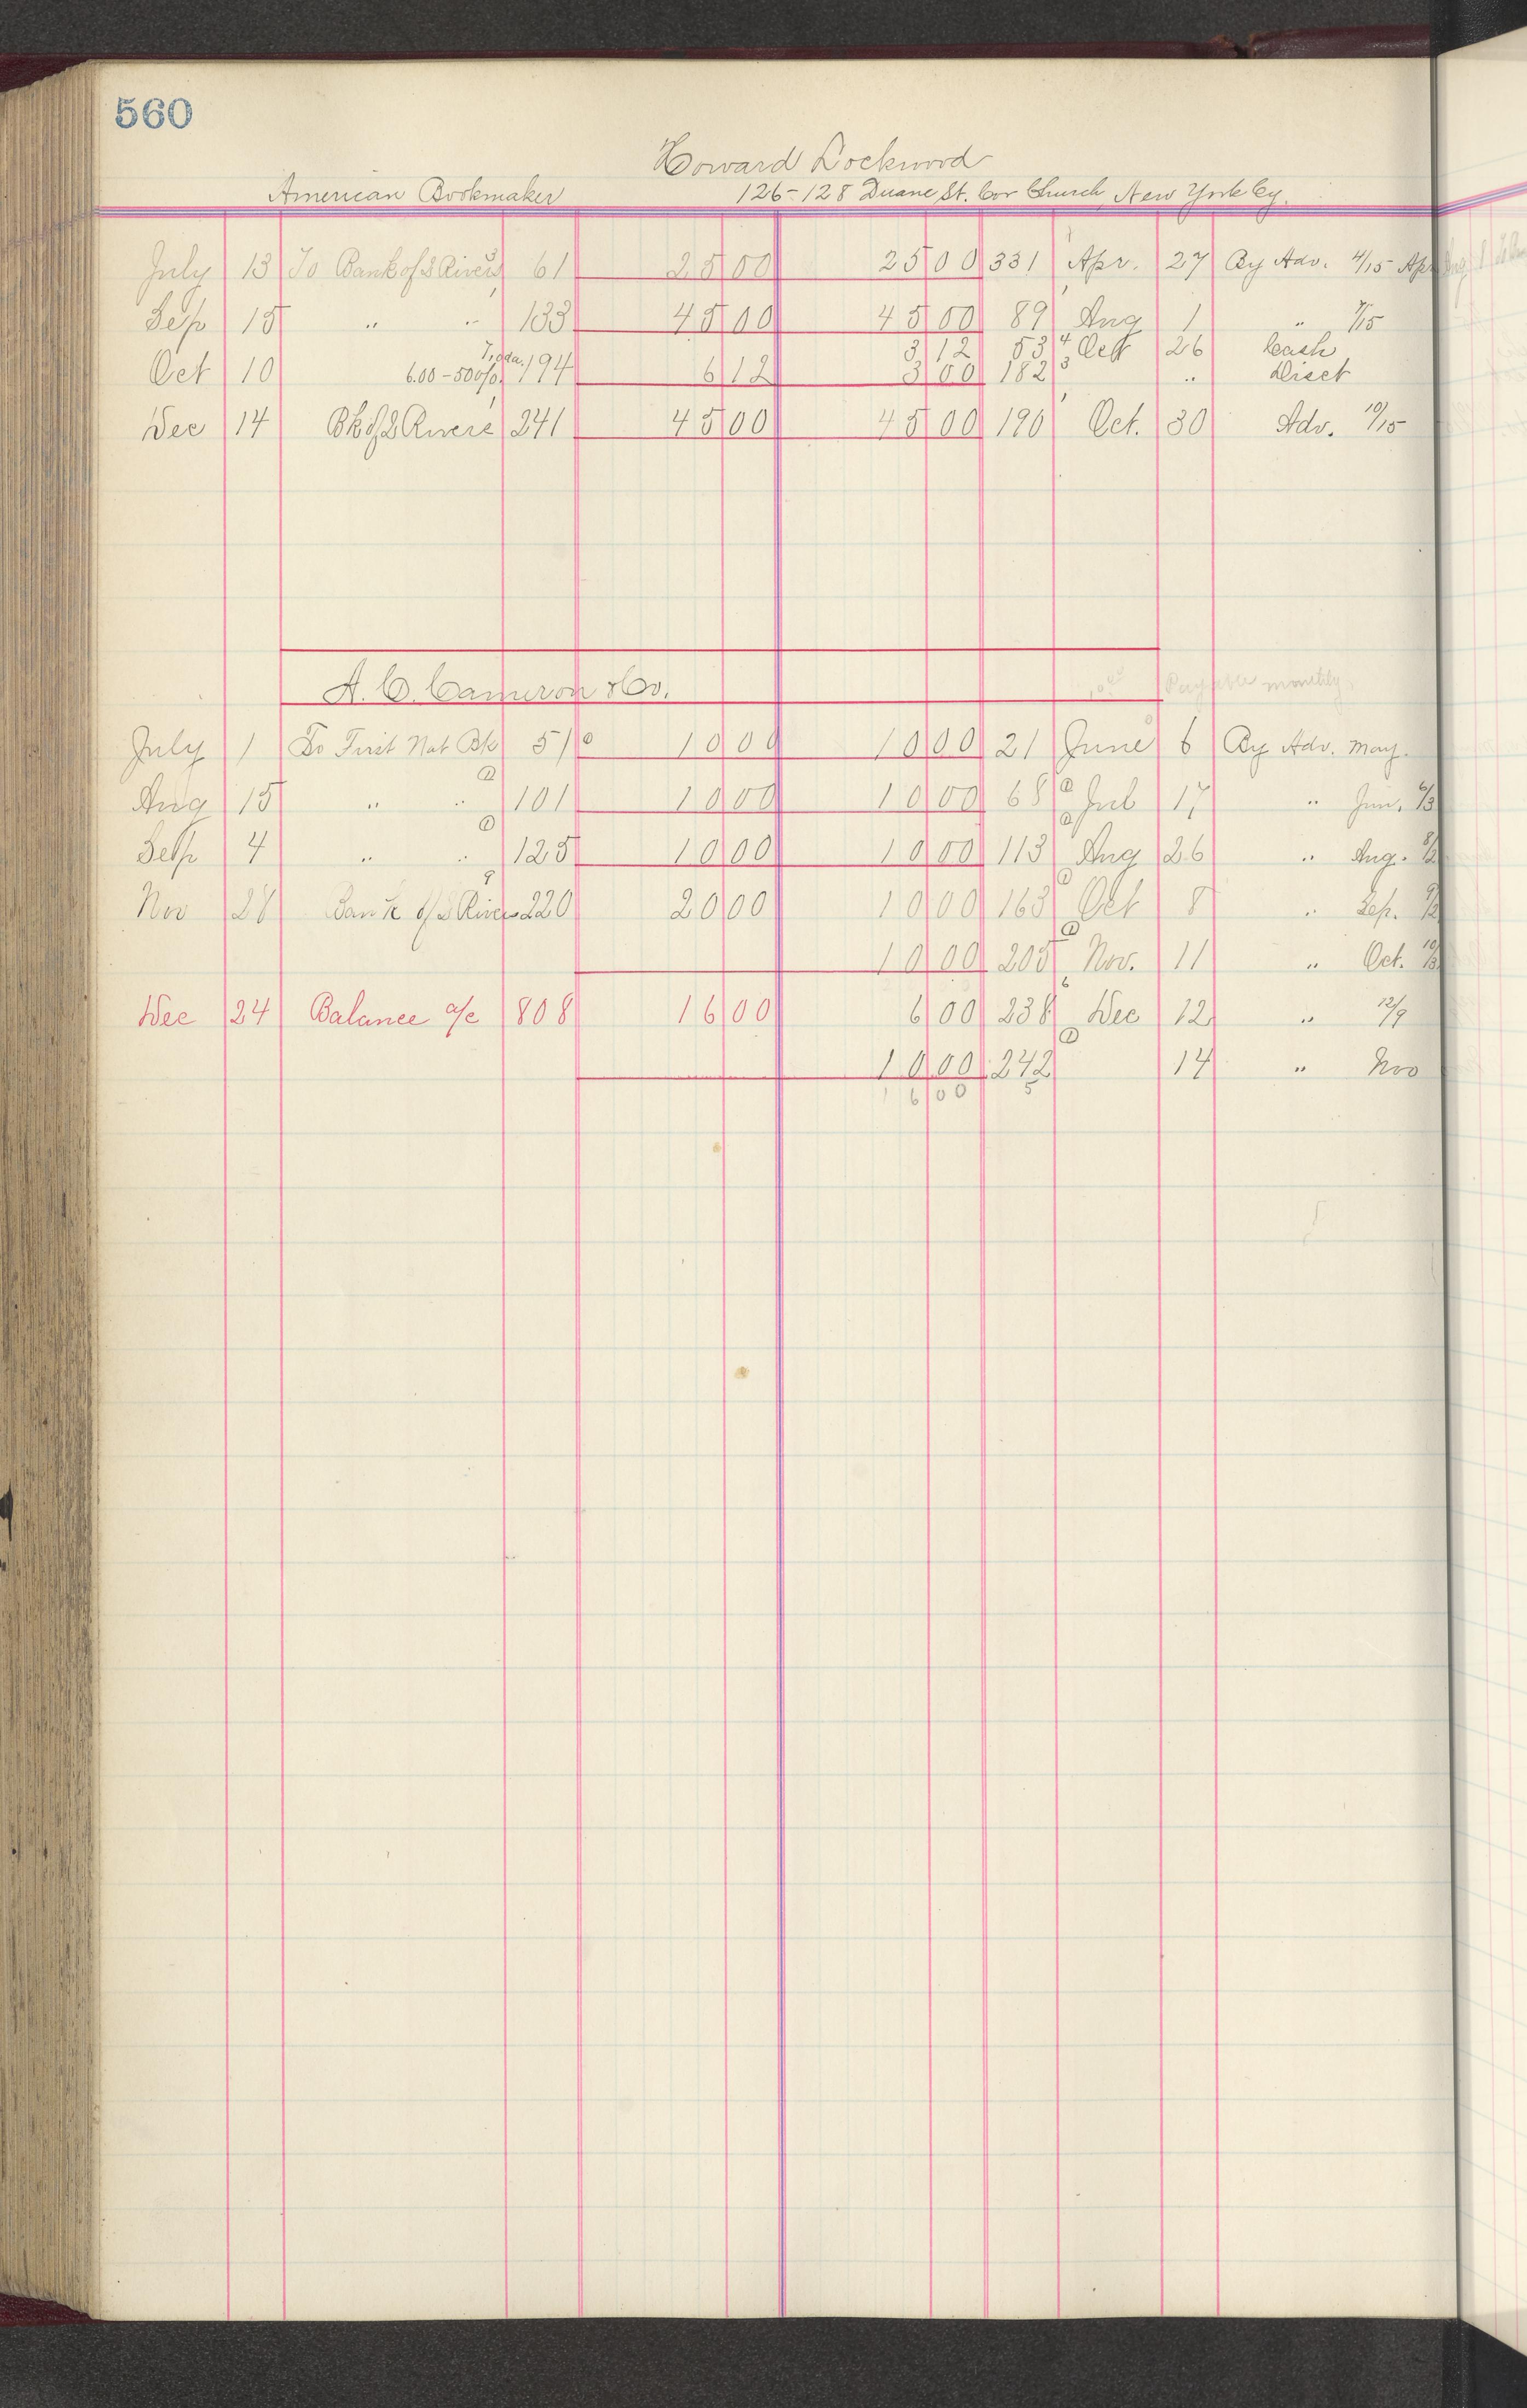 560
Howard Lockwood
American Bookmaker 126-128 Duane St. Cor Church, New York Cy.
July 13 To Bank of 2 Rivers 61 25 00 25 00 331 Apr. 27 By Adv. 4/15 Apr
Sep 15 " " 133 45 00 45 00 89 Aug 1 " 7/15
3 12 53 4 Oct 26 Cash
Oct 10 6.00-50% 194 6 12 3 00 182 3 " Disct
Dec 14 Bk of 2 Rivers 241 45 00 45 00 190 Oct. 30 Adv. 10/15
A. C. Cameron & Co. Payable monthly
July 1 To First Nat Bk 51 10 00 10 00 21 June 6 By Adv. May.
Aug 15 " " 101 10 00 10 00 68 Jul 17 " Jun.
Sep 4 " " 125 10 00 10 00 113 Aug 26 " Aug.
Nov 28 Bank of 2 Rivers 220 20 00 10 00 163 Oct 8 " Sep.
10 00 205 Nov. 11 " Oct.
Dec 24 Balance a/c 808 16 00 6 00 238 Dec 12 " 12/9
10 00 242 14 " Nov
1 6 00